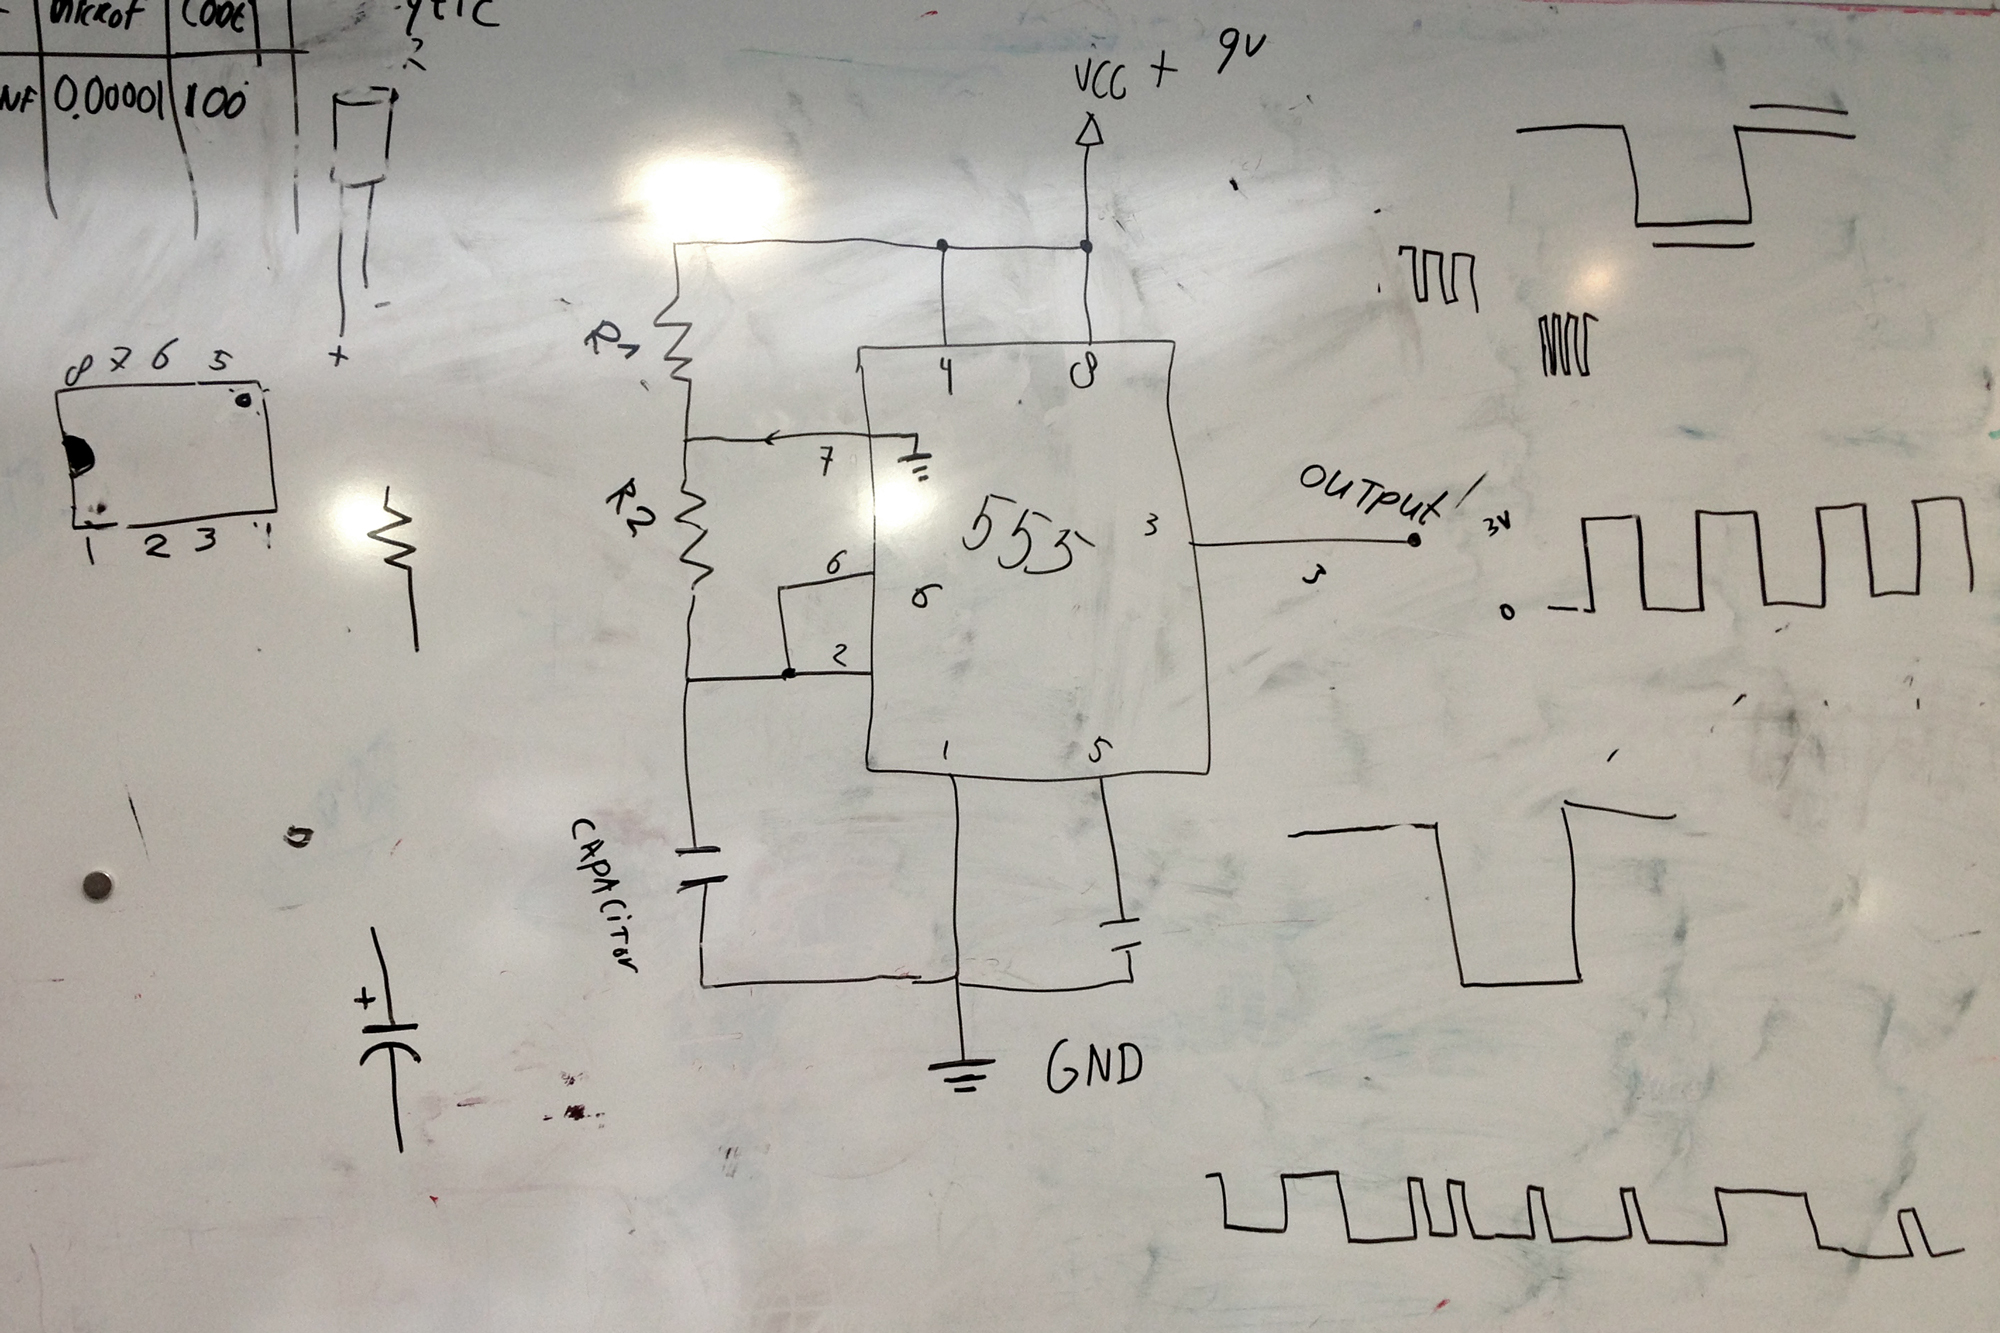 microf code
ytic
?
NF 0.00001 100
VCC + 9V
+
-
8 7 6 5
1 2 3
R1
4 8
7
R2
555
3
OUTPUT
3V
3
0
6
2
1 5
CAPACITOR
+
GND